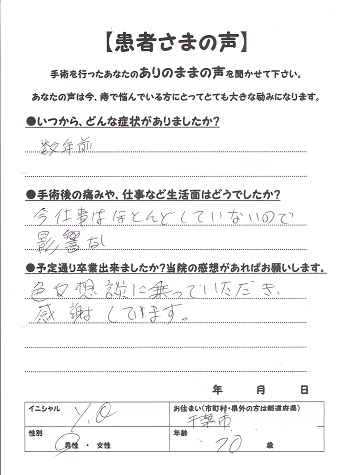 【患者さまの声】
手術を行ったあなたのありのままの声を聞かせて下さい。
あなたの声は今、痔で悩んでいる方にとってとても大きな励みになります。
●いつから、どんな症状がありましたか?
数年前
●手術後の痛みや、仕事など生活面はどうでしたか?
今仕事はほとんどしていないので
影響なし
●予定通り卒業出来ましたか?当院の感想があればお願いします。
色々想談に乗っていただき、
感謝してます。
年 月 日
イニシャル Y.O
お住まい(市町村・県外の方は都道府県) 千葉市
性別 男性 ・ 女性
年齢 70 歳